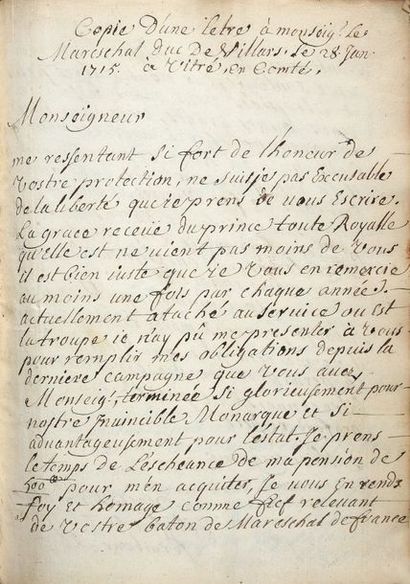 Copie d'une letre à monseig.r Le
Mareschal duc De Villars. Le 28. Jan.
1715. à Vitré, en Comté.
Monseigneur
me ressentant si fort de l'honeur de
Vostre protection, ne suis je pas Excusable
de la liberté que ie prens de vous Escrire.
La grace receüe du prince toute Royalle
qu'elle est ne vient pas moins de Vous
il est bien iuste que ie Vous en remercie
au moins une fois par chaque année.
actuellement ataché au service ou est
la troupe ie n'ay pû me presenter à Vous
pour remplir mes obligations depuis la
derniere campagne que vous aves
Monseig.r terminée si glorieusement pour
nostre Invincible Monarque et si
advantageusement pour l'estat. Je prens
le temps de L'escheance de ma pension de
500 pour m'en acquiter, Je vous en rends
foy et homage comme fief relevant
de Vostre baton de Mareschal de france